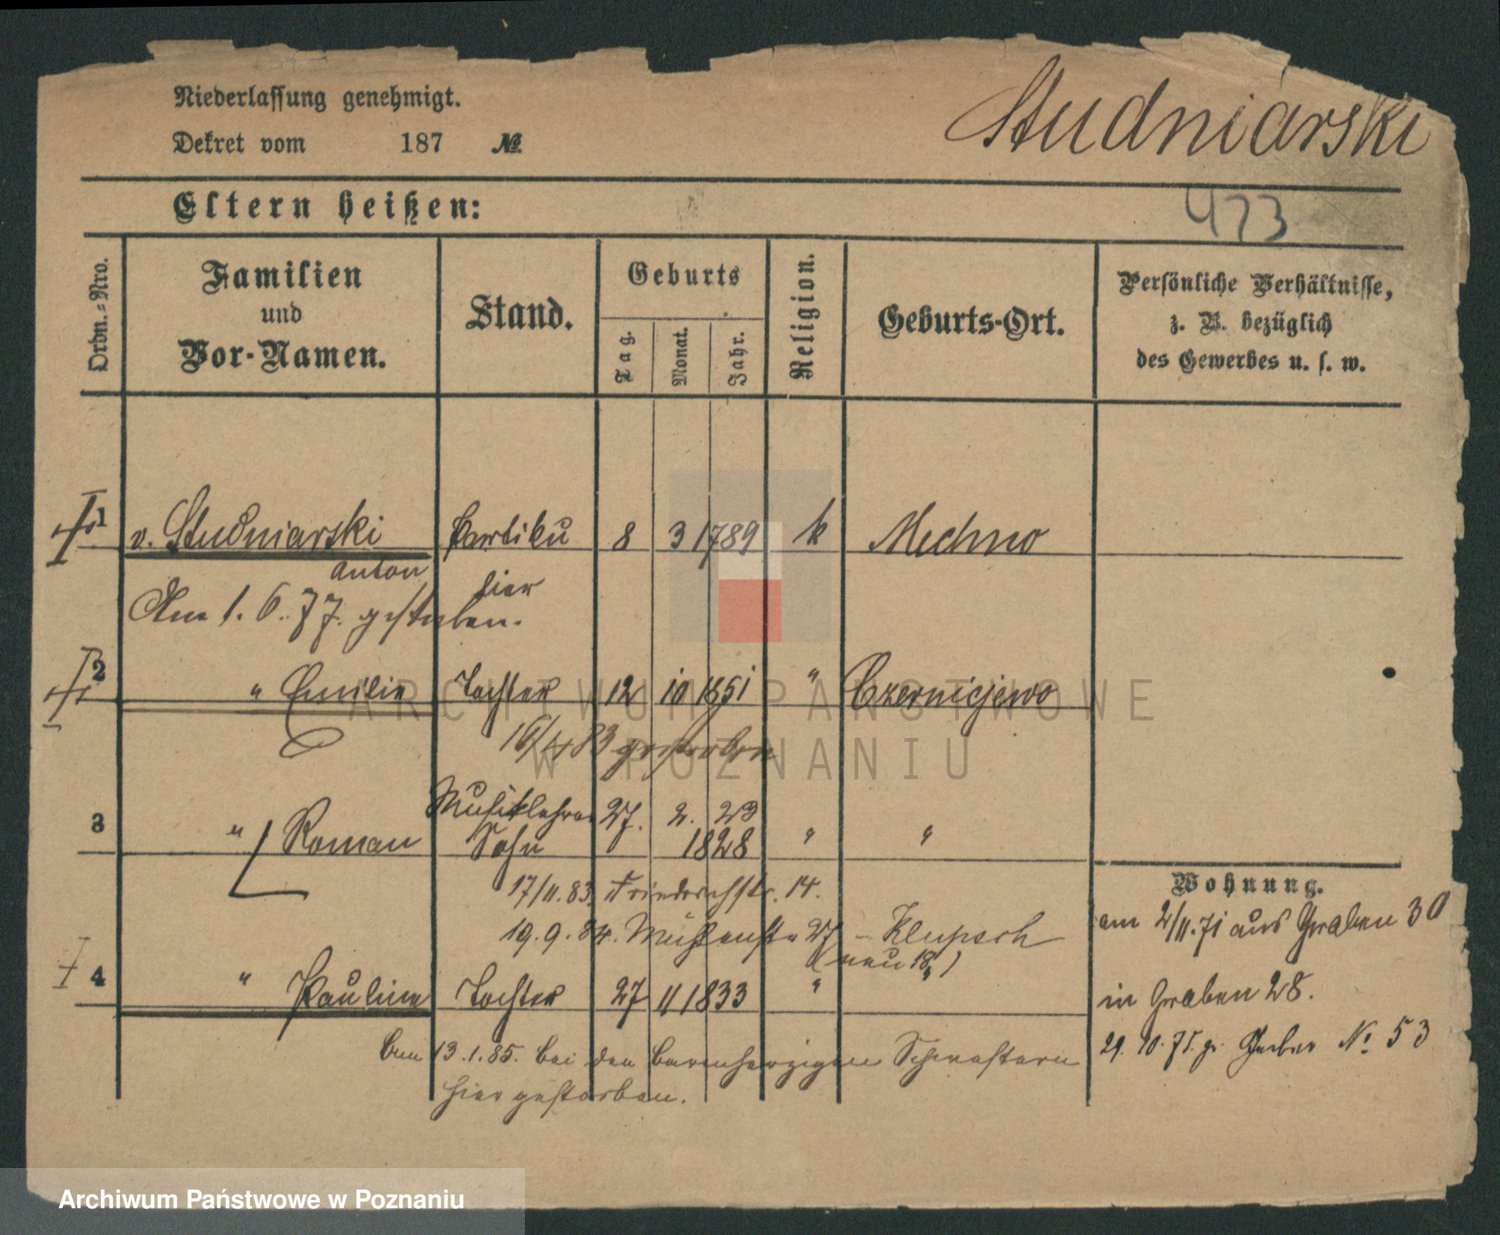 Niederlassung genehmigt.
Studniarski
Dekret vom 187 No.
Eltern heißen:
473
Ordn.-Nro.
Familien
und
Vor-Namen.
Stand.
Geburts
Tag.
Monat.
Jahr.
Religion.
Geburts-Ort.
Persönliche Verhältnisse,
z. B. bezüglich
des Gewerbes u. s. w.
1 v. Studniarski Partiku 8 3 1789 k Mechno
Anton lier
Am 1. 6. 77. gestorben.
2 " Emilie Tochter 12 10 1851 " Czerniejewo
16/4 83 gestorben
3 " Roman Musiklehrer 27. 2. 23
Sohn 1828 " "
17/11.83. Friedrichstr. 14.
19. 9. 84. Mühlenstr 27 – Klupsch
(neu 18,)
4 " Pauline Tochter 27 11 1833 "
den 13.1.85. bei den barmherzigen Schwestern
hier gestorben.
Wohnung.
am 2/11.71 aus Graben 30
in Graben 28.
29. 10. 75. gr. Gerber No. 53
ARCHIWUM PAŃSTWOWE
W POZNANIU
Archiwum Państwowe w Poznaniu